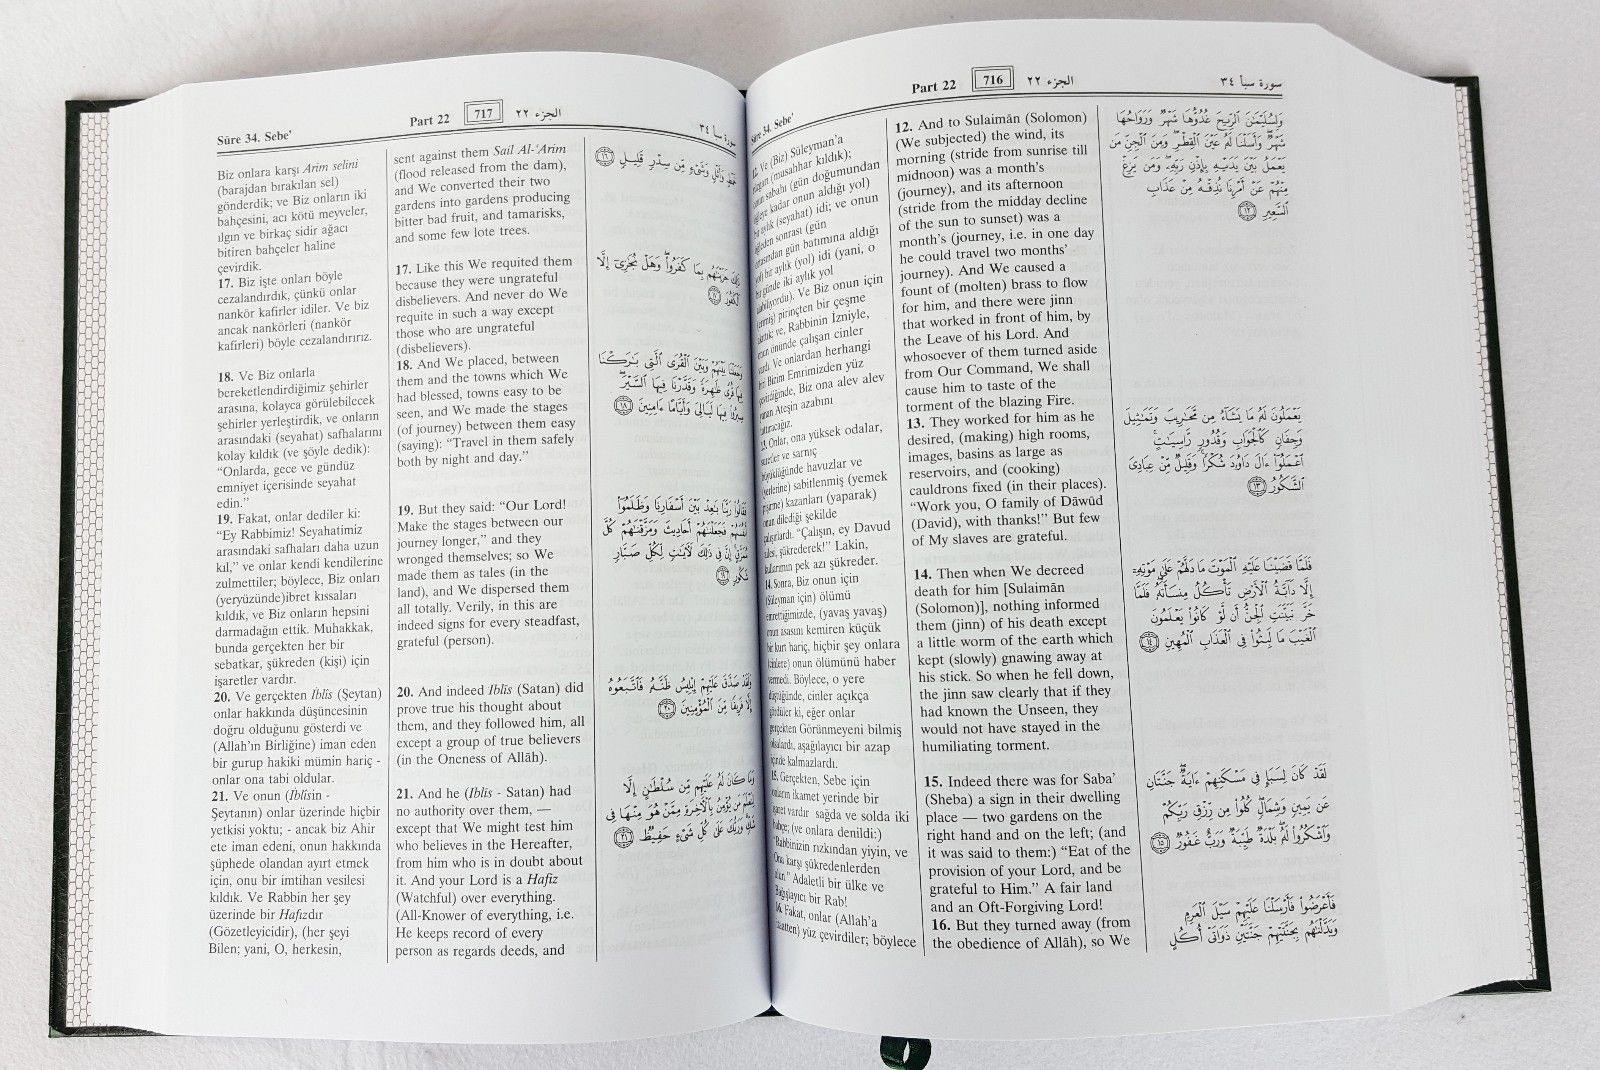 Sûre 34. Sebe' Part 22 716 الجزء ٢٢ سورة سبأ ٣٤
12. Ve (Biz) Süleyman'a
(musahhar kıldık);
sabahı (gün doğumundan
kadar onun aldığı yol)
aylık (seyahat) idi; ve onun
sonrası (gün
gün batımına aldığı
yol) bir aylık (yol) idi (yani, o
bir günde iki aylık yol
Ve Biz onun için
pirinçten bir çeşme
ve, Rabbinin İzniyle,
onun önünde çalışan cinler
vardı. Ve onlardan herhangi
biri Bizim Emrimizden yüz
Biz ona alev alev
yanan Ateşin azabını
13. Onlar, ona yüksek odalar,
suretler ve sarnıç
büyüklüğünde havuzlar ve
(yerlerine) sabitlenmiş (yemek
pişirme) kazanları (yaparak)
onun dilediği şekilde
çalışırlardı. “Çalışın, ey Davud
ailesi, şükrederek!” Lakin,
kullarımın pek azı şükreder.
14. Sonra, Biz onun için
(Süleyman için) ölümü
emrettiğimizde, (yavaş yavaş)
onun asasını kemiren küçük
bir kurt hariç, hiçbir şey onlara
(cinlere) onun ölümünü haber
vermedi. Böylece, o yere
düştüğünde, cinler açıkça
gördüler ki, eğer onlar
gerçekten Görünmeyeni bilmiş
olsalardı, aşağılayıcı bir azap
içinde kalmazlardı.
15. Gerçekten, Sebe için
onların ikamet yerinde bir
işaret vardır sağda ve solda iki
bahçe; (ve onlara denildi:)
“Rabbinizin rızkından yiyin, ve
Ona karşı şükredenlerden
olun.” Adaletli bir ülke ve
Bağışlayıcı bir Rab!
16. Fakat, onlar (Allah'a
itaatten) yüz çevirdiler; böylece
12. And to Sulaimān (Solomon)
(We subjected) the wind, its
morning (stride from sunrise till
midnoon) was a month's
(journey), and its afternoon
(stride from the midday decline
of the sun to sunset) was a
month's (journey, i.e. in one day
he could travel two months'
journey). And We caused a
fount of (molten) brass to flow
for him, and there were jinn
that worked in front of him, by
the Leave of his Lord. And
whosoever of them turned aside
from Our Command, We shall
cause him to taste of the
torment of the blazing Fire.
13. They worked for him as he
desired, (making) high rooms,
images, basins as large as
reservoirs, and (cooking)
cauldrons fixed (in their places).
“Work you, O family of Dāwūd
(David), with thanks!” But few
of My slaves are grateful.
14. Then when We decreed
death for him [Sulaimān
(Solomon)], nothing informed
them (jinn) of his death except
a little worm of the earth which
kept (slowly) gnawing away at
his stick. So when he fell down,
the jinn saw clearly that if they
had known the Unseen, they
would not have stayed in the
humiliating torment.
15. Indeed there was for Saba'
(Sheba) a sign in their dwelling
place — two gardens on the
right hand and on the left; (and
it was said to them:) “Eat of the
provision of your Lord, and be
grateful to Him.” A fair land
and an Oft-Forgiving Lord!
16. But they turned away (from
the obedience of Allāh), so We
وَلِسُلَيْمَٰنَ ٱلرِّيحَ غُدُوُّهَا شَهْرٌ وَرَوَاحُهَا
شَهْرٌ وَأَسَلْنَا لَهُۥ عَيْنَ ٱلْقِطْرِ وَمِنَ ٱلْجِنِّ مَن
يَعْمَلُ بَيْنَ يَدَيْهِ بِإِذْنِ رَبِّهِۦ وَمَن يَزِغْ
مِنْهُمْ عَنْ أَمْرِنَا نُذِقْهُ مِنْ عَذَابِ
ٱلسَّعِيرِ ١٢
يَعْمَلُونَ لَهُۥ مَا يَشَآءُ مِن مَّحَٰرِيبَ وَتَمَٰثِيلَ
وَجِفَانٍ كَٱلْجَوَابِ وَقُدُورٍ رَّاسِيَٰتٍ
ٱعْمَلُوٓا۟ ءَالَ دَاوُۥدَ شُكْرًا وَقَلِيلٌ مِّنْ عِبَادِىَ
ٱلشَّكُورُ ١٣
فَلَمَّا قَضَيْنَا عَلَيْهِ ٱلْمَوْتَ مَا دَلَّهُمْ عَلَىٰ مَوْتِهِۦٓ
إِلَّا دَآبَّةُ ٱلْأَرْضِ تَأْكُلُ مِنسَأَتَهُۥ فَلَمَّا
خَرَّ تَبَيَّنَتِ ٱلْجِنُّ أَن لَّوْ كَانُوا۟ يَعْلَمُونَ
ٱلْغَيْبَ مَا لَبِثُوا۟ فِى ٱلْعَذَابِ ٱلْمُهِينِ ١٤
لَقَدْ كَانَ لِسَبَإٍ فِى مَسْكَنِهِمْ ءَايَةٌ جَنَّتَانِ
عَن يَمِينٍ وَشِمَالٍ كُلُوا۟ مِن رِّزْقِ رَبِّكُمْ
وَٱشْكُرُوا۟ لَهُۥ بَلْدَةٌ طَيِّبَةٌ وَرَبٌّ غَفُورٌ ١٥
فَأَعْرَضُوا۟ فَأَرْسَلْنَا عَلَيْهِمْ سَيْلَ ٱلْعَرِمِ
وَبَدَّلْنَٰهُم بِجَنَّتَيْهِمْ جَنَّتَيْنِ ذَوَاتَىْ أُكُلٍ
Sûre 34. Sebe' Part 22 717 الجزء ٢٢ سورة سبأ ٣٤
Biz onlara karşı Arim selini
(barajdan bırakılan sel)
gönderdik; ve Biz onların iki
bahçesini, acı kötü meyveler,
ılgın ve birkaç sidir ağacı
bitiren bahçeler haline
çevirdik.
17. Biz işte onları böyle
cezalandırdık, çünkü onlar
nankör kafirler idiler. Ve biz
ancak nankörleri (nankör
kafirleri) böyle cezalandırırız.
18. Ve Biz onlarla
bereketlendirdiğimiz şehirler
arasına, kolayca görülebilecek
şehirler yerleştirdik, ve onların
arasındaki (seyahat) safhalarını
kolay kıldık (ve şöyle dedik):
“Onlarda, gece ve gündüz
emniyet içerisinde seyahat
edin.”
19. Fakat, onlar dediler ki:
“Ey Rabbimiz! Seyahatimiz
arasındaki safhaları daha uzun
kıl,” ve onlar kendi kendilerine
zulmettiler; böylece, Biz onları
(yeryüzünde)ibret kıssaları
kıldık, ve Biz onların hepsini
darmadağın ettik. Muhakkak,
bunda gerçekten her bir
sebatkar, şükreden (kişi) için
işaretler vardır.
20. Ve gerçekten Iblîs (Şeytan)
onlar hakkında düşüncesinin
doğru olduğunu gösterdi ve
(Allah'ın Birliğine) iman eden
bir gurup hakiki mümin hariç -
onlar ona tabi oldular.
21. Ve onun (Iblîsin -
Şeytanın) onlar üzerinde hiçbir
yetkisi yoktu; - ancak biz Ahir
ete iman edeni, onun hakkında
şüphede olandan ayırt etmek
için, onu bir imtihan vesilesi
kıldık. Ve Rabbin her şey
üzerinde bir Hafızdır
(Gözetleyicidir), (her şeyi
Bilen; yani, O, herkesin,
sent against them Sail Al-‘Arim
(flood released from the dam),
and We converted their two
gardens into gardens producing
bitter bad fruit, and tamarisks,
and some few lote trees.
17. Like this We requited them
because they were ungrateful
disbelievers. And never do We
requite in such a way except
those who are ungrateful
(disbelievers).
18. And We placed, between
them and the towns which We
had blessed, towns easy to be
seen, and We made the stages
(of journey) between them easy
(saying): “Travel in them safely
both by night and day.”
19. But they said: “Our Lord!
Make the stages between our
journey longer,” and they
wronged themselves; so We
made them as tales (in the
land), and We dispersed them
all totally. Verily, in this are
indeed signs for every steadfast,
grateful (person).
20. And indeed Iblîs (Satan) did
prove true his thought about
them, and they followed him, all
except a group of true believers
(in the Oneness of Allāh).
21. And he (Iblîs - Satan) had
no authority over them, —
except that We might test him
who believes in the Hereafter,
from him who is in doubt about
it. And your Lord is a Hafîz
(Watchful) over everything.
(All-Knower of everything, i.e.
He keeps record of every
person as regards deeds, and
خَمْطٍ وَأَثْلٍ وَشَىْءٍ مِّن سِدْرٍ قَلِيلٍ ١٦
ذَٰلِكَ جَزَيْنَٰهُم بِمَا كَفَرُوا۟ وَهَلْ نُجَٰزِىٓ إِلَّا
ٱلْكَفُورَ ١٧
وَجَعَلْنَا بَيْنَهُمْ وَبَيْنَ ٱلْقُرَى ٱلَّتِى بَٰرَكْنَا
فِيهَا قُرًى ظَٰهِرَةً وَقَدَّرْنَا فِيهَا ٱلسَّيْرَ
سِيرُوا۟ فِيهَا لَيَالِىَ وَأَيَّامًا ءَامِنِينَ ١٨
فَقَالُوا۟ رَبَّنَا بَٰعِدْ بَيْنَ أَسْفَارِنَا وَظَلَمُوٓا۟
أَنفُسَهُمْ فَجَعَلْنَٰهُمْ أَحَادِيثَ وَمَزَّقْنَٰهُمْ كُلَّ
مُمَزَّقٍ إِنَّ فِى ذَٰلِكَ لَءَايَٰتٍ لِّكُلِّ صَبَّارٍ
شَكُورٍ ١٩
وَلَقَدْ صَدَّقَ عَلَيْهِمْ إِبْلِيسُ ظَنَّهُۥ فَٱتَّبَعُوهُ
إِلَّا فَرِيقًا مِّنَ ٱلْمُؤْمِنِينَ ٢٠
وَمَا كَانَ لَهُۥ عَلَيْهِم مِّن سُلْطَٰنٍ إِلَّا
لِنَعْلَمَ مَن يُؤْمِنُ بِٱلْءَاخِرَةِ مِمَّنْ هُوَ مِنْهَا فِى
شَكٍّ وَرَبُّكَ عَلَىٰ كُلِّ شَىْءٍ حَفِيظٌ ٢١